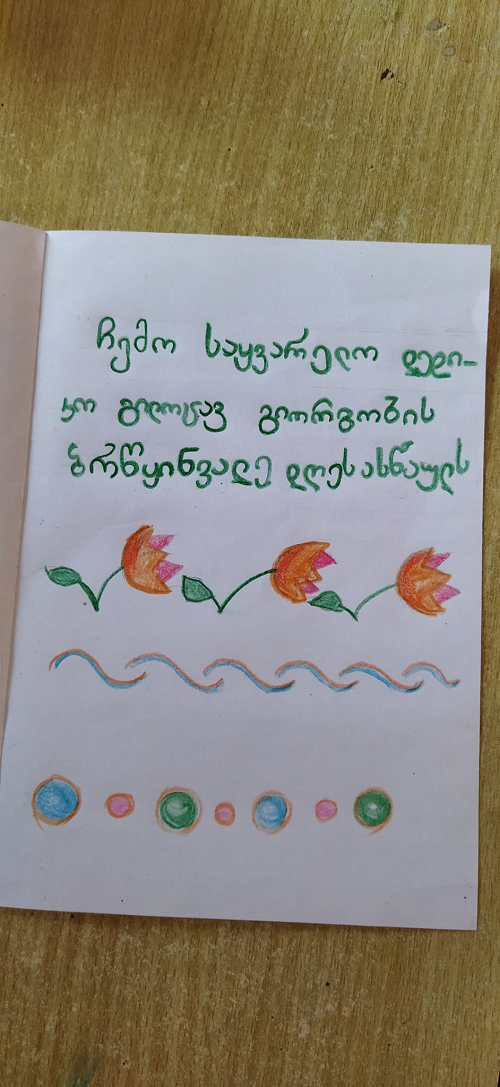 ჩემო საყვარელო დედი-
კო გილოცავ გიორგობის
ბრწყინვალე დღესასწაულს